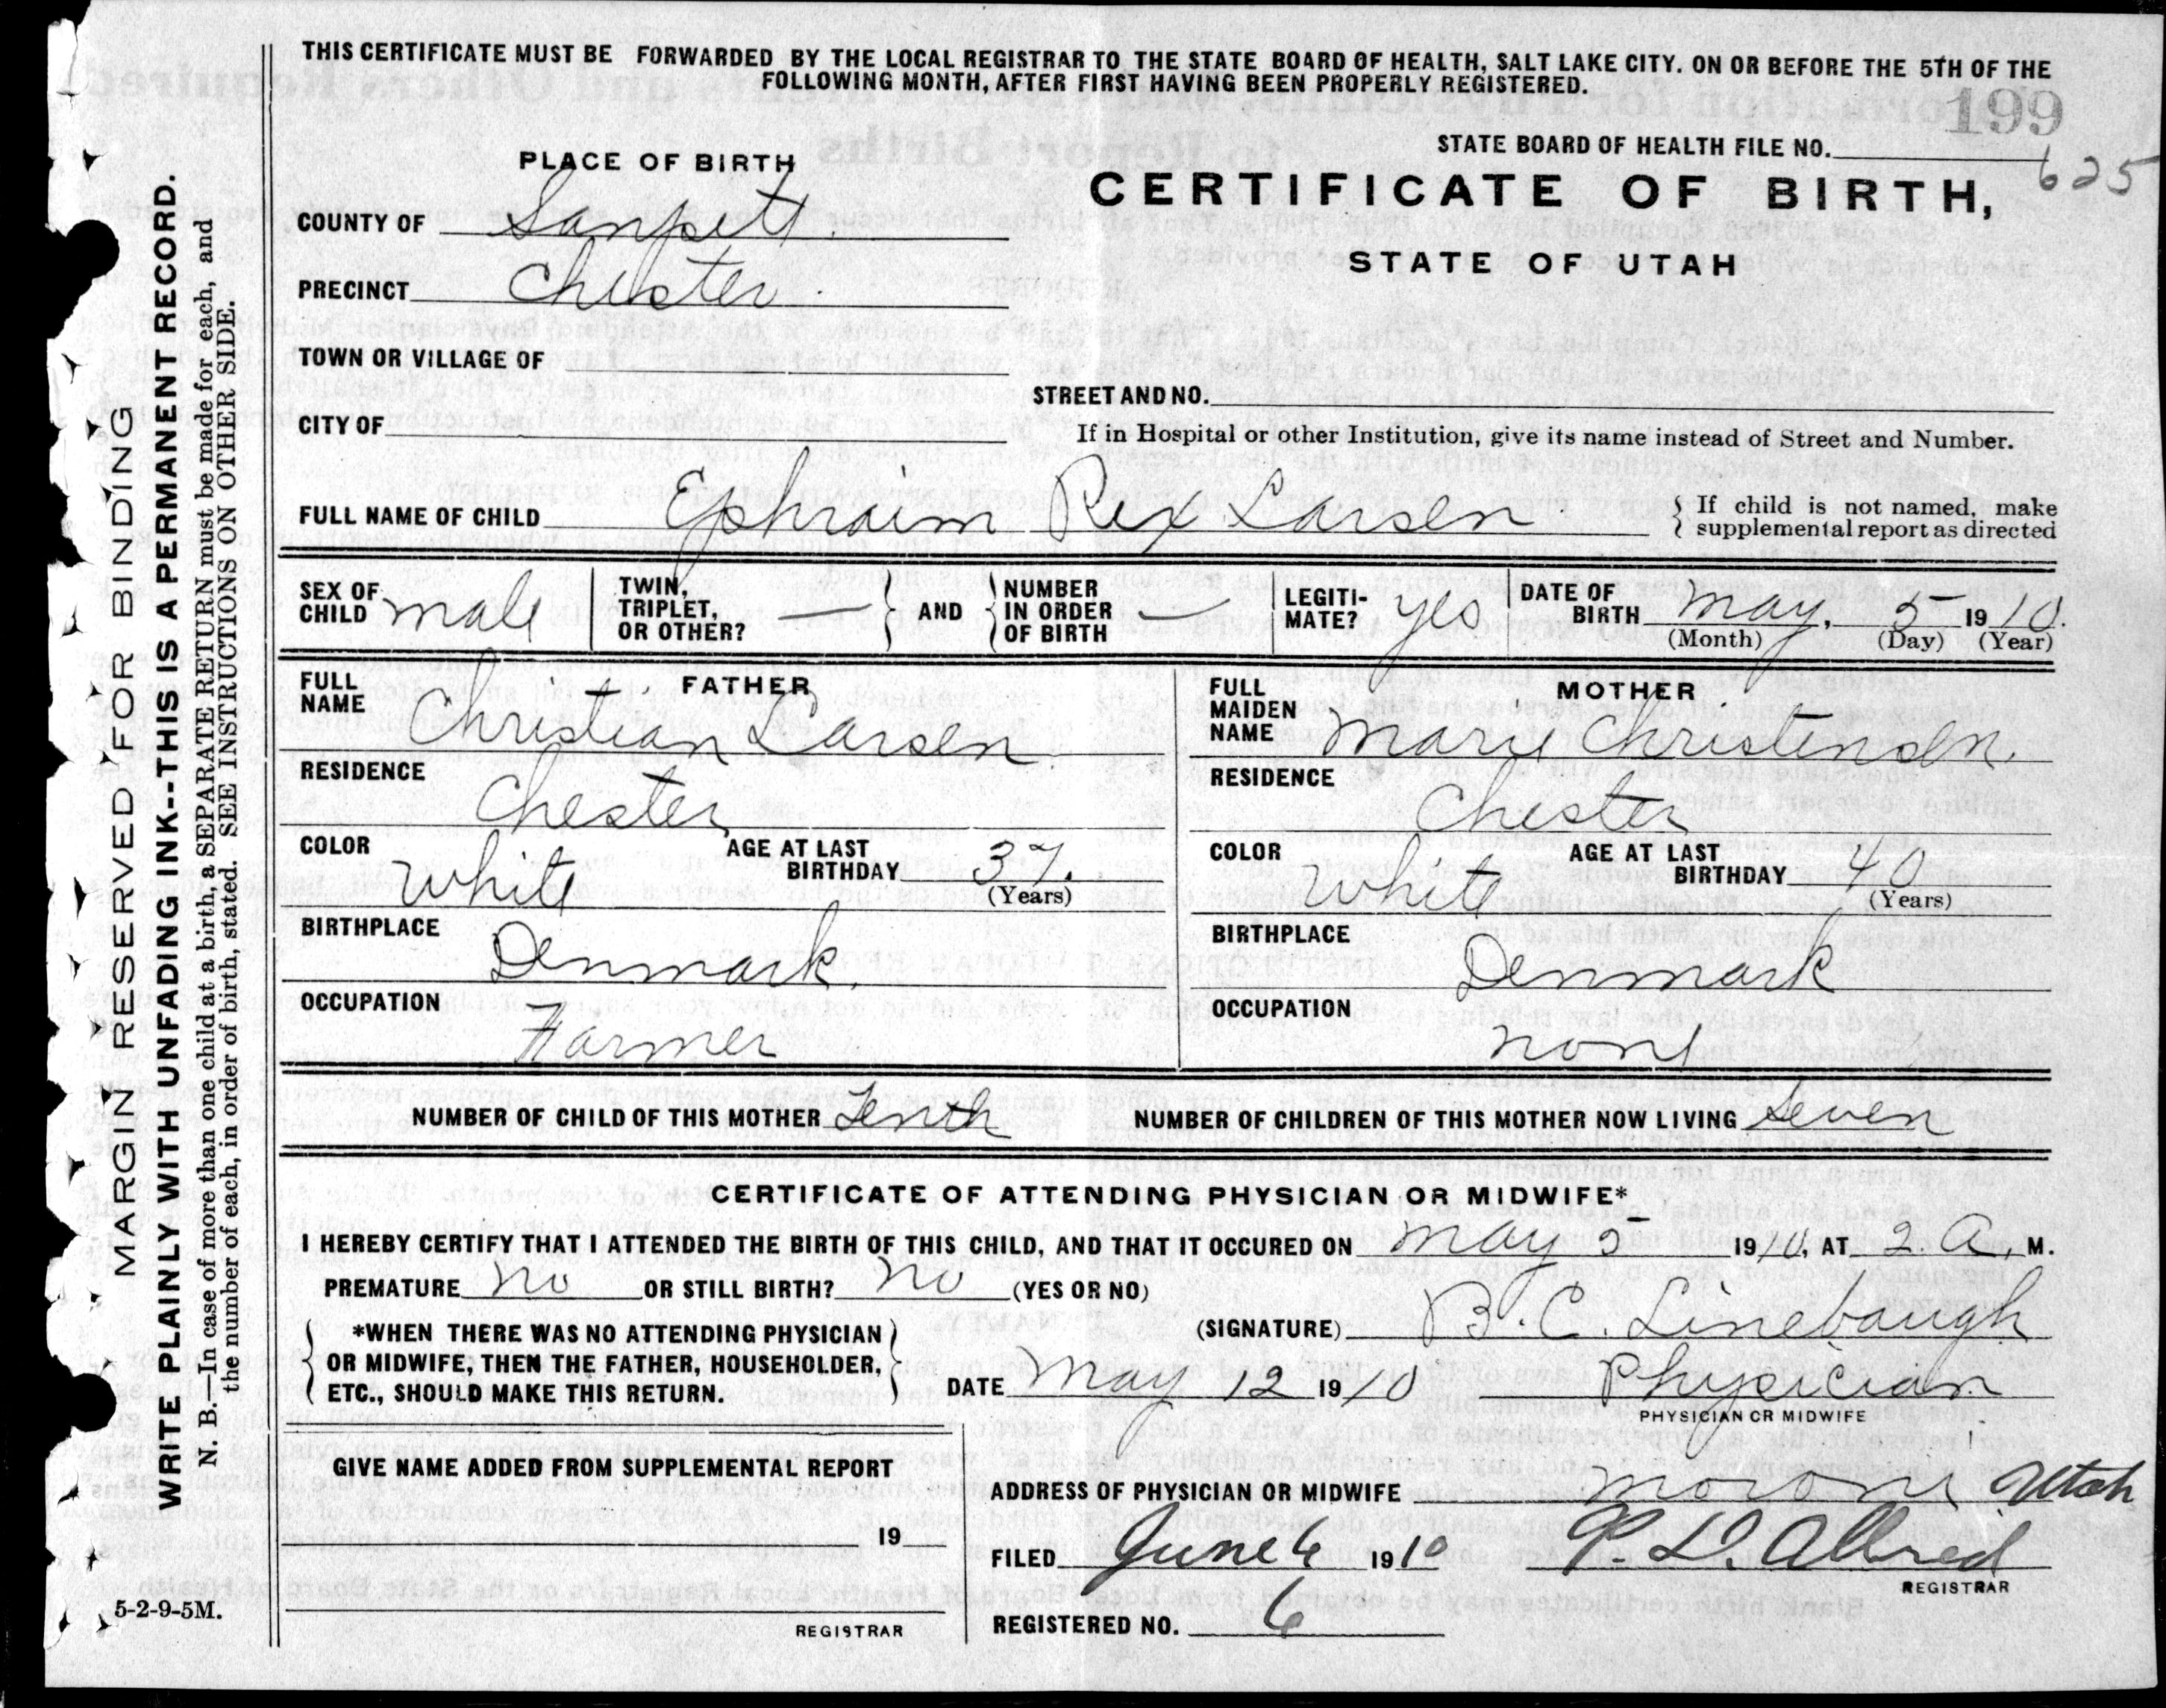 THIS CERTIFICATE MUST BE FORWARDED BY THE LOCAL REGISTRAR TO THE STATE BOARD OF HEALTH, SALT LAKE CITY. ON OR BEFORE THE 5TH OF THE
FOLLOWING MONTH, AFTER FIRST HAVING BEEN PROPERLY REGISTERED.
199
STATE BOARD OF HEALTH FILE NO.
625
PLACE OF BIRTH
CERTIFICATE OF BIRTH,
COUNTY OF Sanpett.
STATE OF UTAH
PRECINCT Chester.
TOWN OR VILLAGE OF
STREET AND NO.
CITY OF
If in Hospital or other Institution, give its name instead of Street and Number.
FULL NAME OF CHILD Ephraim Rex Larsen
If child is not named, make
supplemental report as directed
SEX OF CHILD male
TWIN, TRIPLET, OR OTHER? —
AND
NUMBER IN ORDER OF BIRTH —
LEGITI-MATE? yes
DATE OF BIRTH May. 5 1910.
(Month) (Day) (Year)
FATHER
FULL NAME Christian Larsen.
RESIDENCE Chester
COLOR White
AGE AT LAST BIRTHDAY 37.
(Years)
BIRTHPLACE Denmark.
OCCUPATION Farmer
MOTHER
FULL MAIDEN NAME Marie Christensen.
RESIDENCE Chester
COLOR White
AGE AT LAST BIRTHDAY 40
(Years)
BIRTHPLACE Denmark
OCCUPATION none
NUMBER OF CHILD OF THIS MOTHER Tenth
NUMBER OF CHILDREN OF THIS MOTHER NOW LIVING Seven
CERTIFICATE OF ATTENDING PHYSICIAN OR MIDWIFE*
I HEREBY CERTIFY THAT I ATTENDED THE BIRTH OF THIS CHILD, AND THAT IT OCCURED ON May 5 1910, AT 2. A. M.
PREMATURE No OR STILL BIRTH? No (YES OR NO)
*WHEN THERE WAS NO ATTENDING PHYSICIAN
OR MIDWIFE, THEN THE FATHER, HOUSEHOLDER,
ETC., SHOULD MAKE THIS RETURN.
(SIGNATURE) B. C. Linebaugh
DATE May 12 1910 Physician
PHYSICIAN OR MIDWIFE
GIVE NAME ADDED FROM SUPPLEMENTAL REPORT
19
REGISTRAR
ADDRESS OF PHYSICIAN OR MIDWIFE Moroni Utah
FILED June 6 1910 P. D. Allred
REGISTRAR
REGISTERED NO. 6
MARGIN RESERVED FOR BINDING
WRITE PLAINLY WITH UNFADING INK--THIS IS A PERMANENT RECORD.
N. B.—In case of more than one child at a birth, a SEPARATE RETURN must be made for each, and
the number of each, in order of birth, stated. SEE INSTRUCTIONS ON OTHER SIDE.
5-2-9-5M.